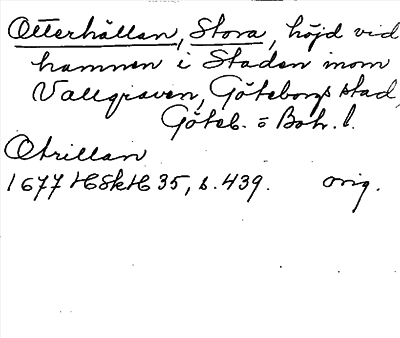 Otterhällan, Stora, höjd vid
hamnen i Staden inom
Vallgraven, Göteborgs stad,
Göteb. o Boh. l.
Otrillan
1677 HSkH 35, s. 439. orig.